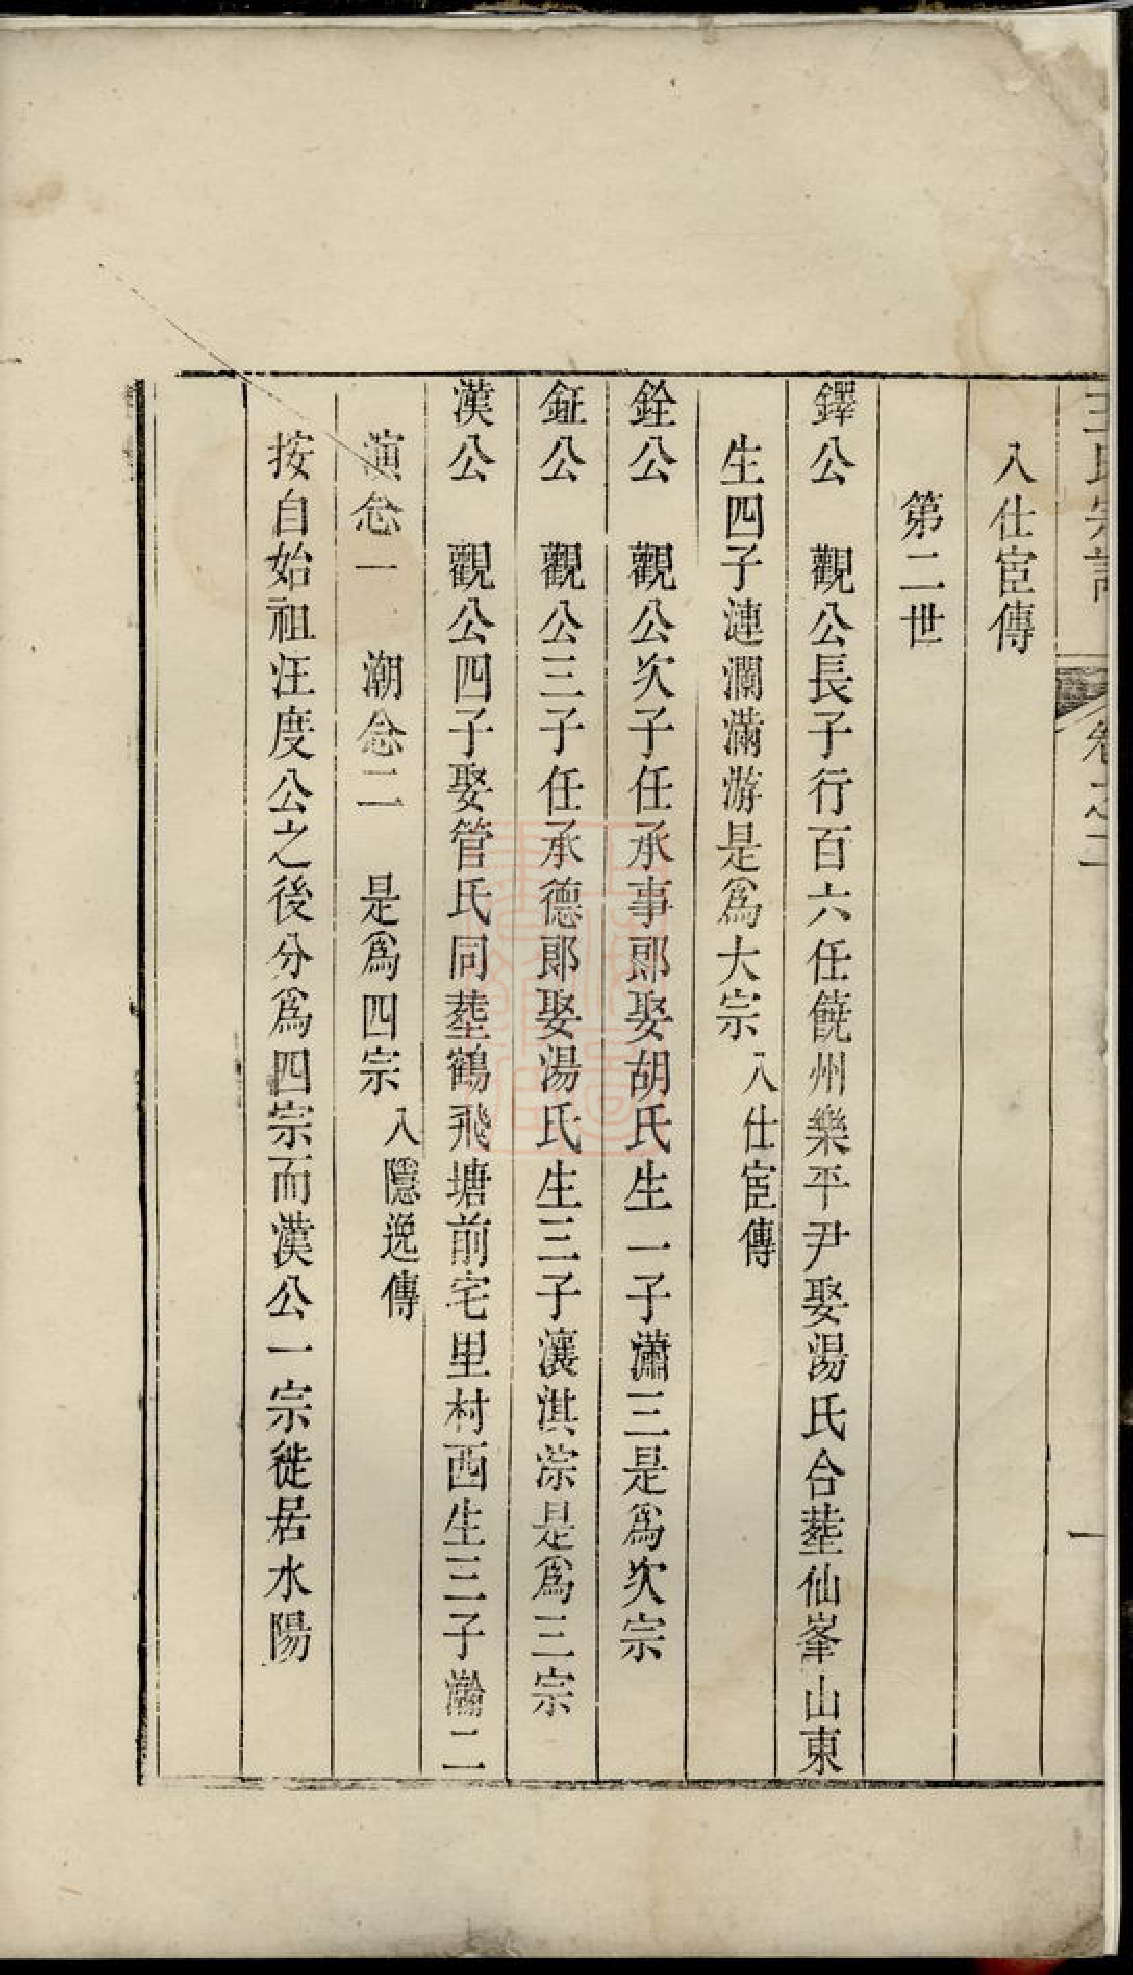 王氏宗譜 卷之二 一
入仕宦傳
第二世
鐸公 觀公長子行百六任饒州樂平尹娶湯氏合塟仙峯山東
生四子漣瀾滿游是爲大宗入仕宦傳
銓公 觀公次子任承事郎娶胡氏生一子瀟三是爲次宗
鉦公 觀公三子任承德郎娶湯氏生三子瀼淇淙是爲三宗
漢公 觀公四子娶管氏同塟鶴飛塘前宅里村西生三子瀚二
演念一 潮念二 是爲四宗入隱逸傳
按自始祖汪度公之後分爲四宗而漢公一宗徙居水陽